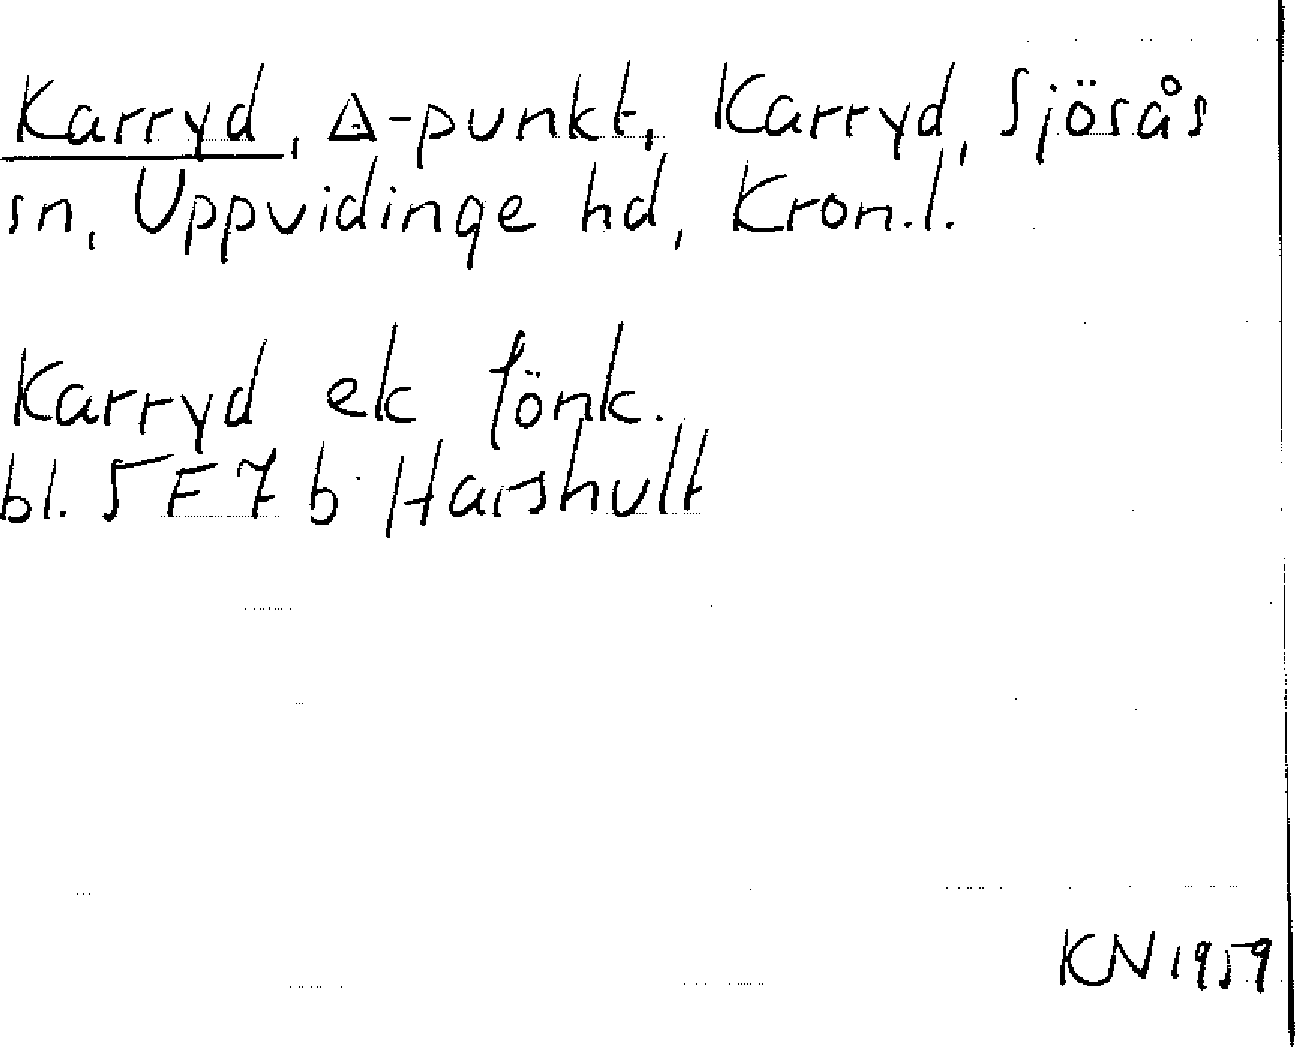 Karryd, Δ-punkt, Karryd, Sjösås
sn, Uppvidinge hd, Kron.l.
Karryd ek fönk.
bl. 5F7b Harshult
KN 1959